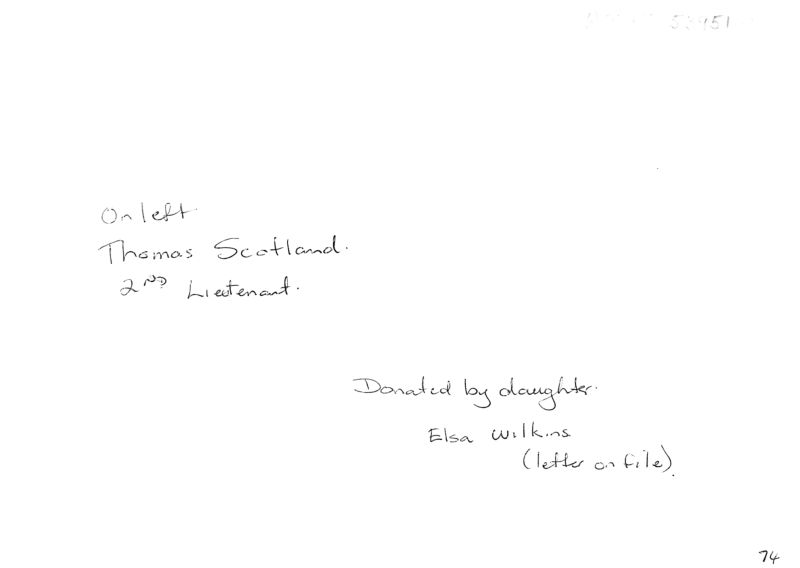 53451
On left.
Thomas Scotland.
2ND Lieutenant.
Donated by daughter.
Elsa Wilkins
(letter on file).
74